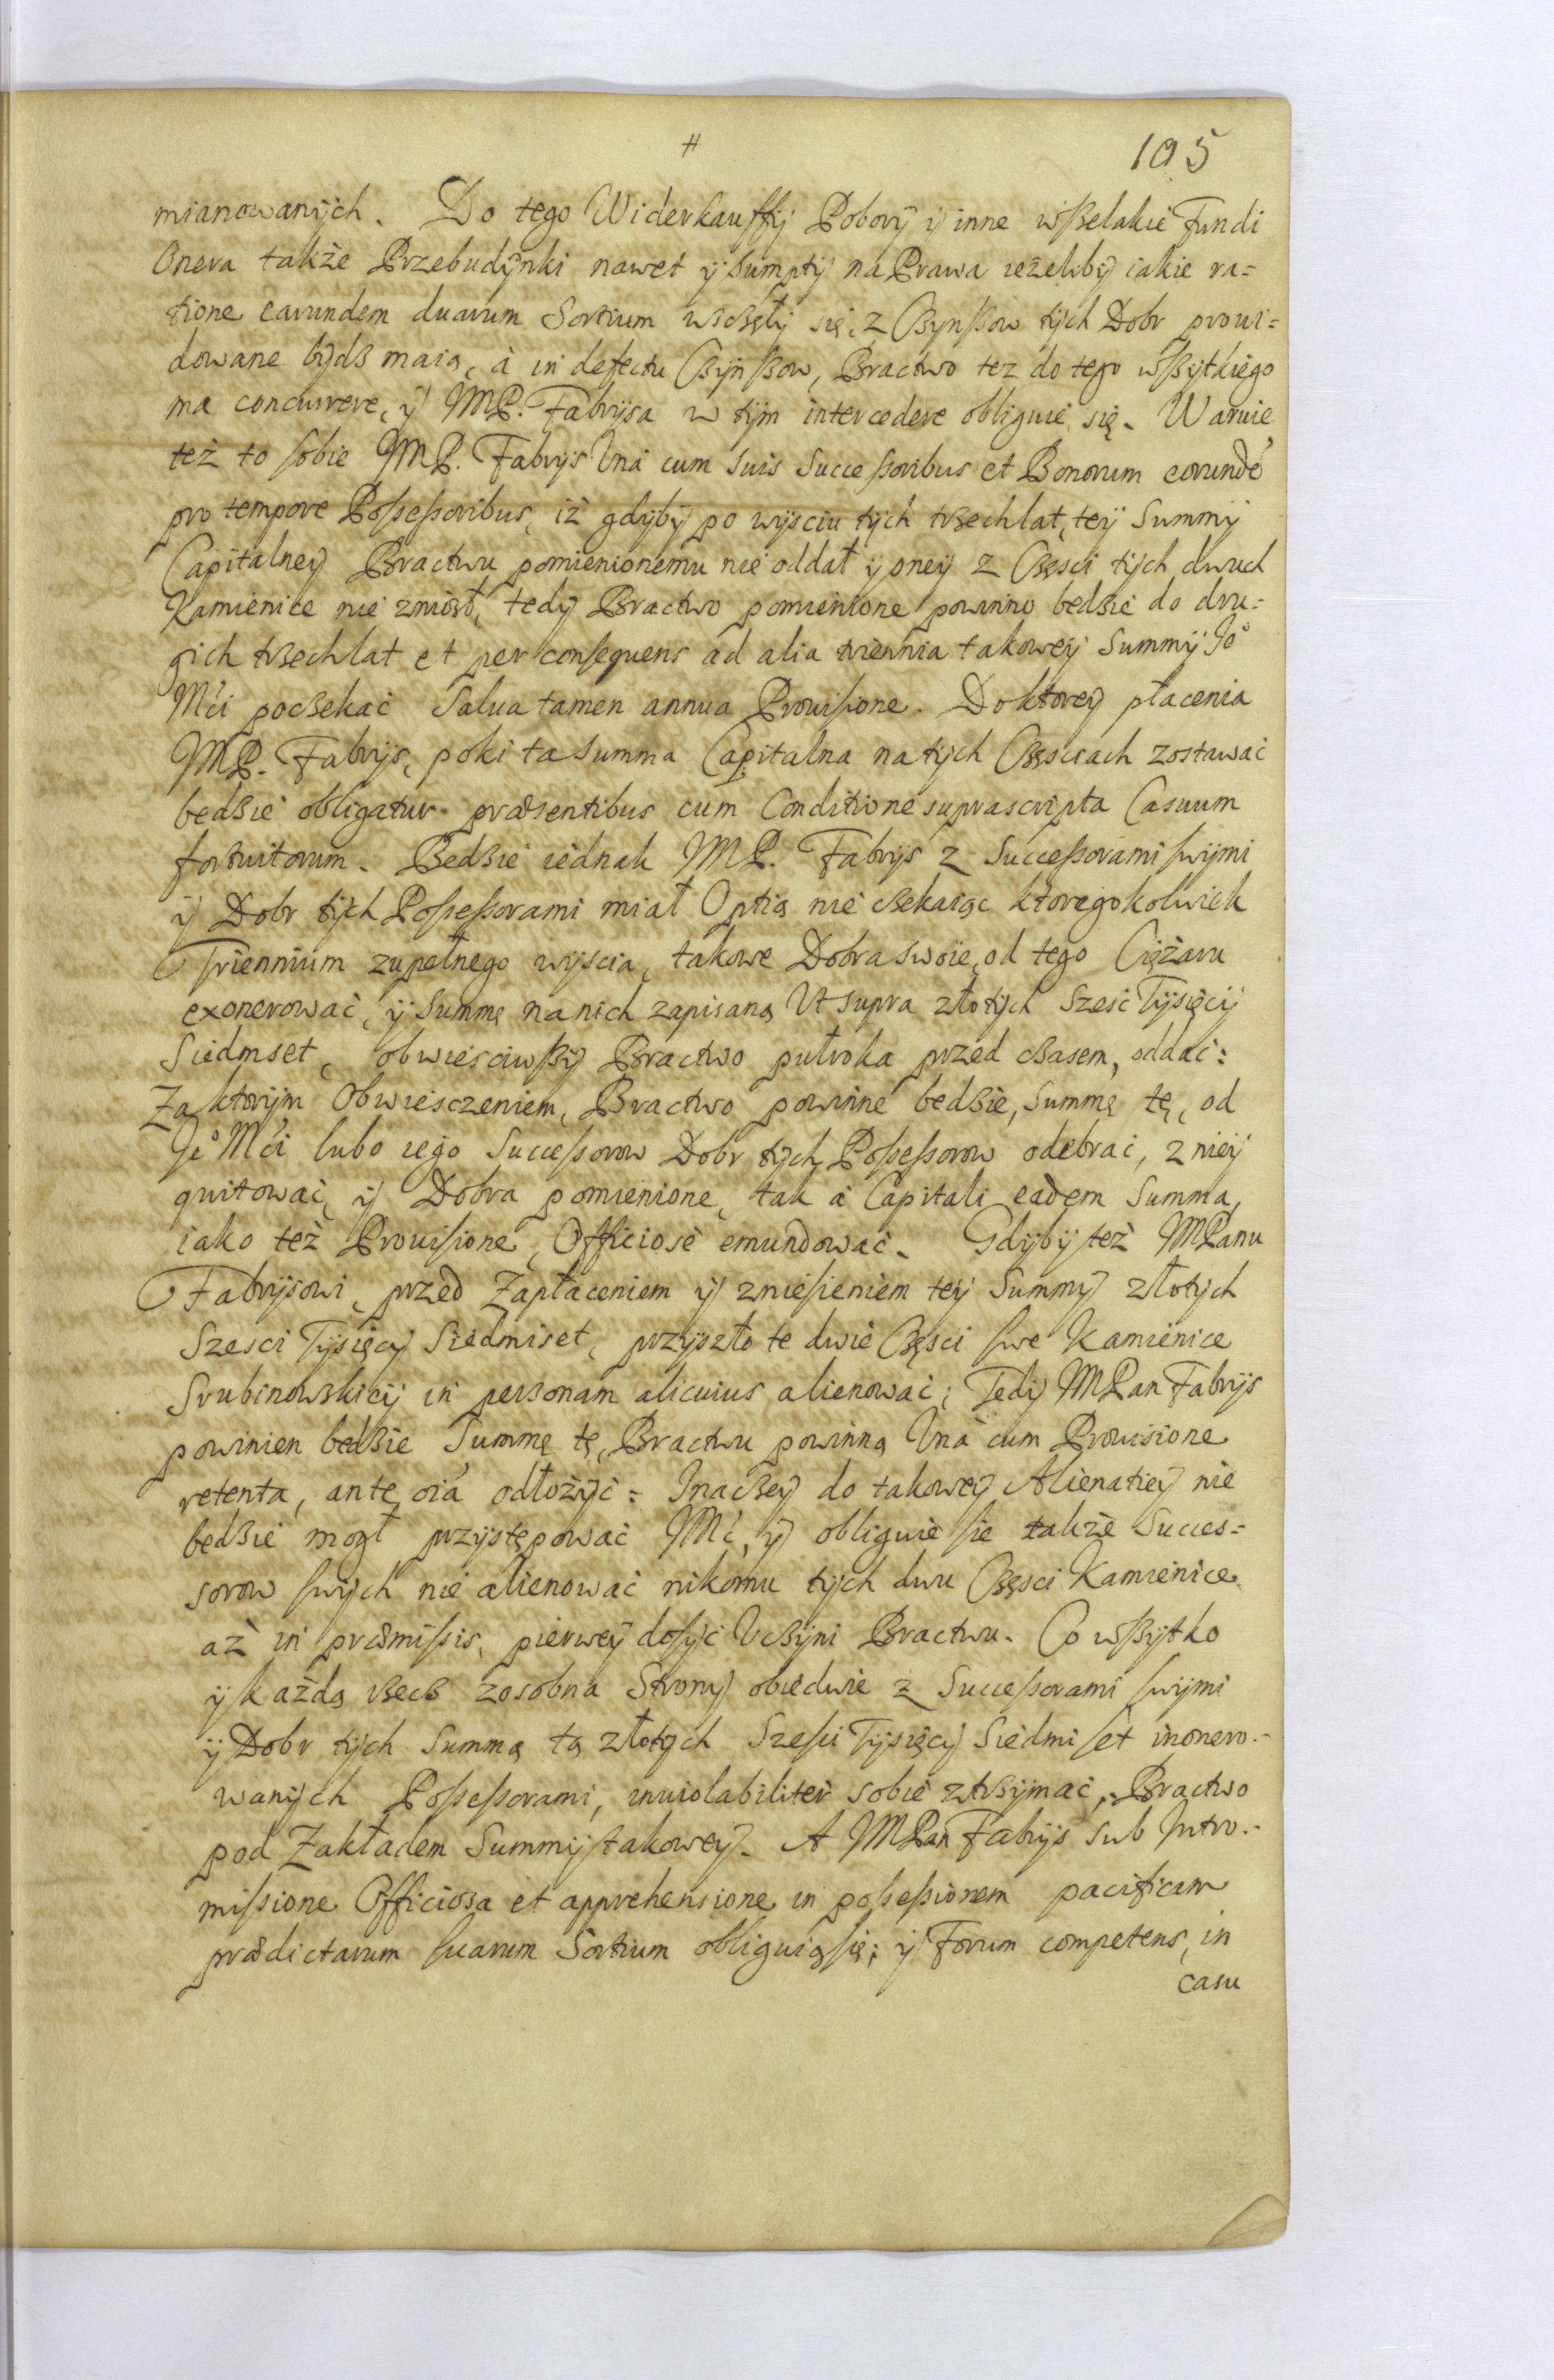 #
105
mianowanÿch. Do tego Widerkauffÿ Poborÿ ÿ inne wßelakie Fundi
Onera także Przebudÿnki nawet ÿ Sumptÿ na Prawa ieżelibÿ iakie ra=
tione earundem duarum Sortium wsczęłÿ się, z Czÿnßow tÿch Dobr prowi=
dowane bÿdz maią, à in defectu Czÿnßow, Bractwo tez do tego wßÿtkiego
ma concurrere, ÿ JMP. Fabrÿsa w tÿm intercedere obliguie się. Waruie
też to sobie JMP. Fabrÿs Vna cum suis Succeßoribus et Bonorum eorundē
pro tempore Poßeßoribus, iż gdÿbÿ po wÿsciu tÿch trzechlat, teÿ Summÿ
Capitalneÿ Bractwu pomienionemu nie oddał ÿ oneÿ z Częsci tÿch dwuch
Kamienice nie zniosł, tedÿ Bractwo pomienione powinno bedzie do dru=
gich trzechlat et per consequens ad alia triennia takoweÿ Summÿ Je°
Mći poczekać Salua tamen annua Prouisione. Do ktoreÿ płacenia
JMP. Fabrÿs, poki ta Summa Capitalna na tÿch Częsciach zostawać
bedzie obligatur præsentibus cum Conditione suprascripta Casuum
fortuitorum. Bedzie iednak JMP. Fabrÿs z Succeßorami swÿmi
ÿ Dobr tÿch Poßeßorami miał Optią nie czekaiąc ktoregokolwiek
Triennium zupełnego wÿscia, takowe Dobra swoie, od tego Ciężaru
exonerować, ÿ Summę na nich zapisaną Vt supra złotÿch Szesć Tÿsięcÿ
Siedmset, obwiesciwßÿ Bractwo pułroka przed czasem, oddać:
Za ktorÿm Obwiesczeniem, Bractwo powinne bedzie, Summę tę, od
Je° Mći lubo iego Succeßorow Dobr tÿch Poßeßorow odebrać, z nieÿ
quitować, ÿ Dobra pomienione, tak à Capitali eadem Summa,
iako też Prouisione, Officiosè emundować. Gdÿbÿ też JMPanu
Fabrÿsowi, przed Zapłaceniem ÿ zniesieniem teÿ Summÿ złotÿch
Szesci Tÿsięcÿ Siedmiset, przÿszło te dwie Częsci swe Kamienice
Srubinowskieÿ in personam alicuius alienować; Tedÿ JMPan Fabrÿs
powinien bedzie Summę tę, Bractwu powinną Vnà cum Prouisione
retenta, ante oīā odłożÿć: Inaczeÿ do takoweÿ Alienatieÿ nie
bedzie mogł przÿstępować JMć, ÿ obliguie sie także Succes=
sorow swÿch nie alienować nikomu tÿch dwu Częsci Kamienice
aż in præmißis, pierweÿ dosÿć Vczÿni Bractwu. Co wßÿtko
ÿ każdą rzecz zosobna Stronÿ obiedwie z Succeßorami swÿmi
ÿ Dobr tÿch Summą tą złotÿch Szesci Tÿsięcÿ Siedmiset inonero=
wanÿch Poßeßorami, inuiolabiliter sobie ztrzÿmać, Bractwo
pod Zakładem Summÿ takoweÿ. A JMPan Fabrÿs sub Intro=
mißione Officiosa et apprehensione in poßeßionem pacificam
prædictarum suarum Sortium obliguią się; ÿ Forum competens, in
casu